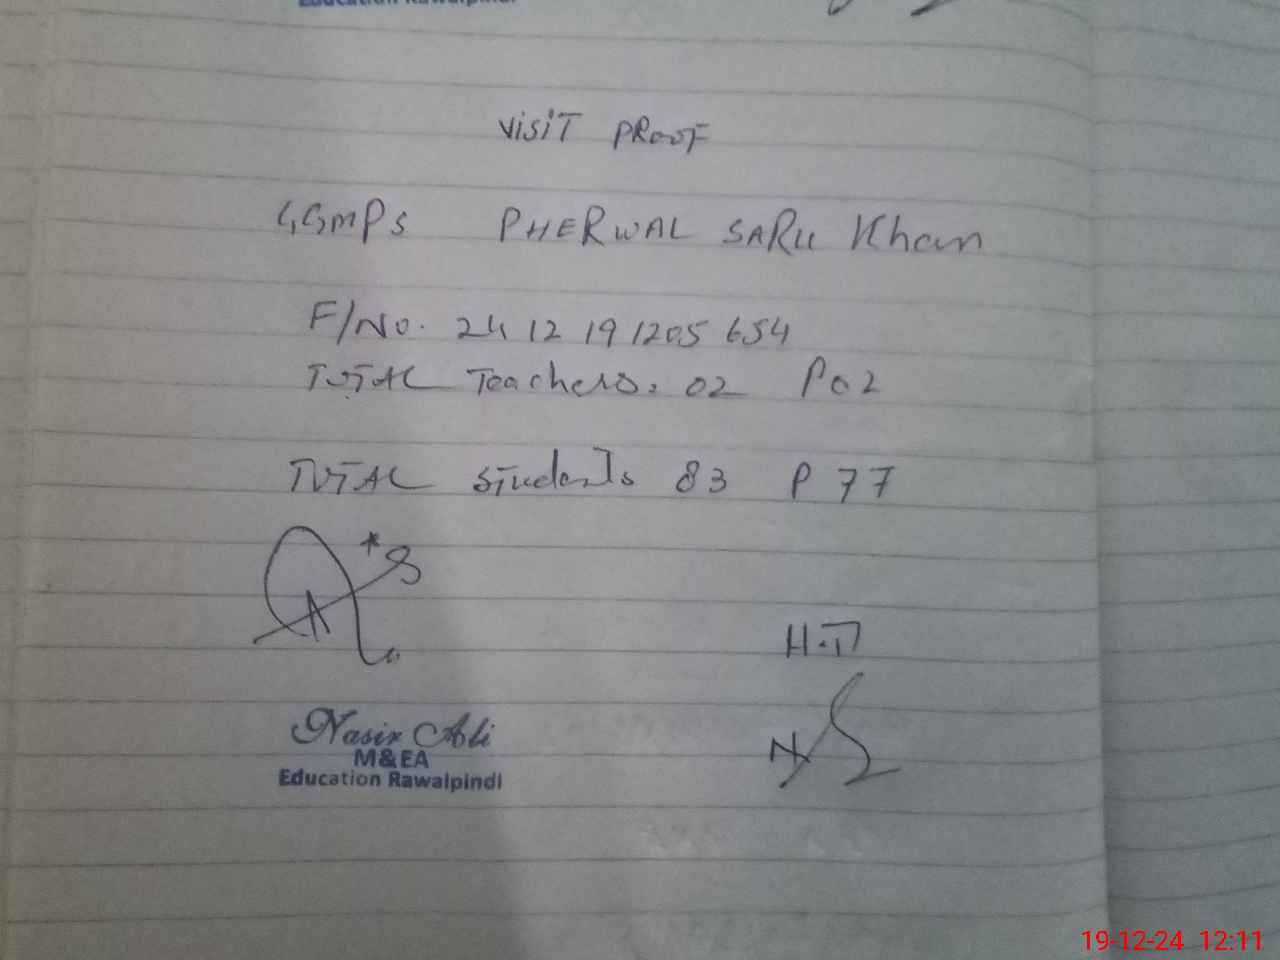 Education Rawalpindi
VISIT PROOF
GGMPS PHERWAL SARU Khan
F/No. 24 12 19 1205 654
TOTAL Teachers. 02 P 02
TOTAL Students 83 P 77
H.T
Nasir Ali
M&EA
Education Rawalpindi
19-12-24 12:11